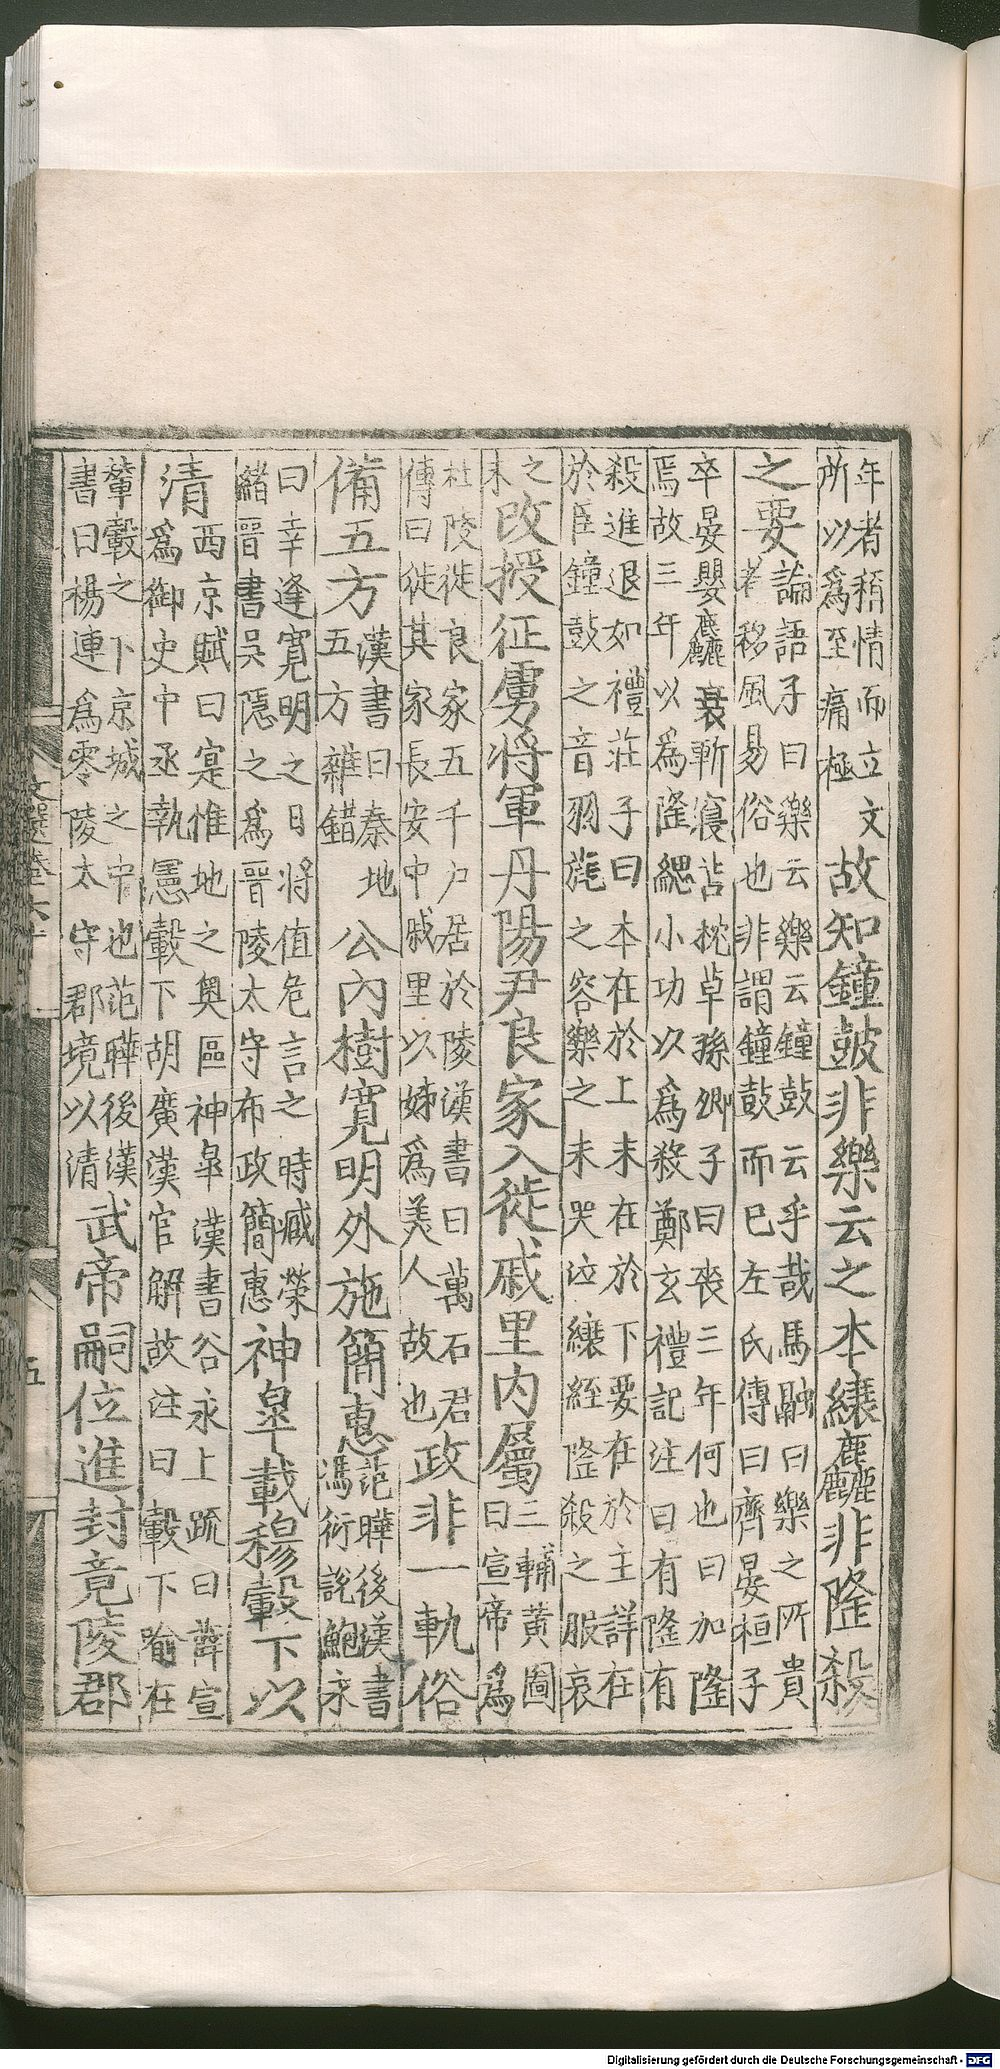 年者稱情而立文
所以爲至痛極
故知鐘鼓非樂云之本纕麤非隆殺
之要
論語子曰樂云樂云鐘鼓云乎哉馬融曰樂之所貴
者移風易俗也非謂鐘鼓而已左氏傳曰齊晏桓子
卒晏嬰麤衰斬寢苫枕草孫卿子曰喪三年何也曰加隆
焉故三年以爲隆緦小功以爲殺鄭玄禮記注曰有隆有
殺進退如禮莊子曰本在於上末在於下要在於主詳在
於臣鐘鼓之音羽旄之容樂之末哭泣纕絰隆殺之服哀
之
末
改授征虜將軍丹陽尹良家入徙戚里内屬
三輔黃圖
曰宣帝爲
杜陵徙良家五千户居於陵漢書曰萬石君
傳曰徙其家長安中戚里以姊爲美人故也
政非一軌俗
備五方
漢書曰秦地
五方雜錯
公内樹寛明外施簡惠
范曄後漢書
馮衍說鮑永
曰幸逢寛明之日將值危言之時臧榮
緒晉書吳隱之爲晉陵太守布政簡惠
神皐載穆轂下以
清
西京賦曰寔惟地之奧區神皐漢書谷永上疏曰薛宣
爲御史中丞執憲轂下胡廣漢官解故注曰轂下喻在
輦轂之下京城之中也范曄後漢
書曰楊連爲零陵太守郡境以清
武帝嗣位進封竟陵郡
文選卷六十
五
Digitalisierung gefördert durch die Deutsche Forschungsgemeinschaft - DFG